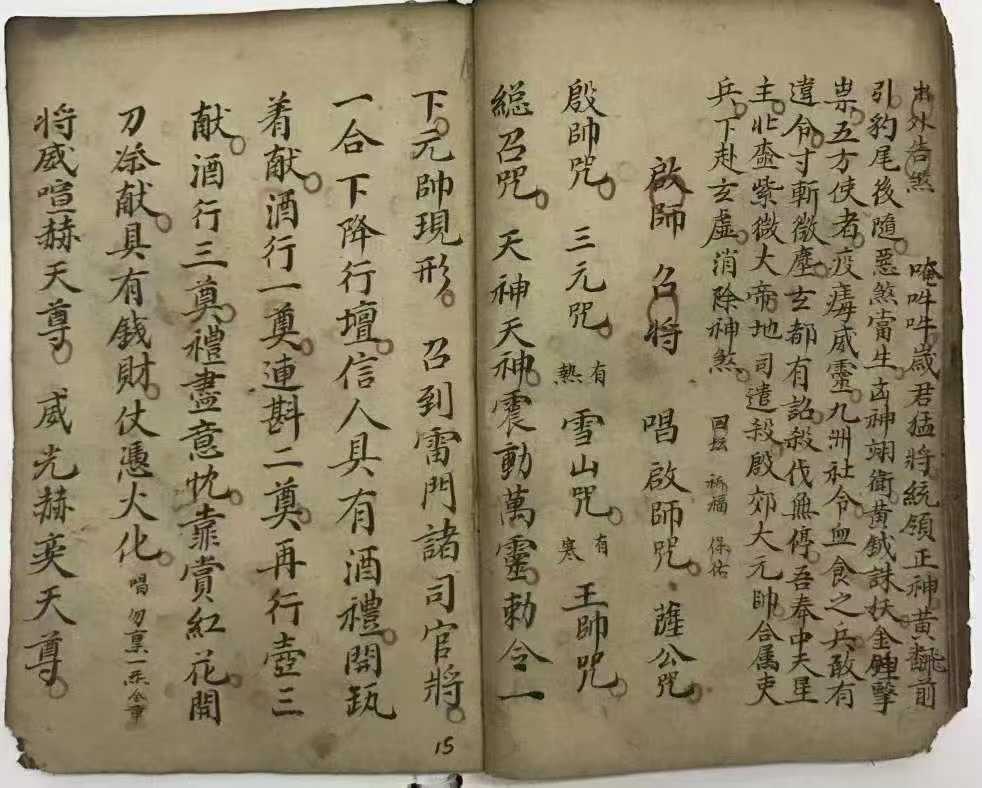 出外告煞　唵吽吽歳君猛將統領正神黃旛前
引豹尾後隨惡煞當生凶神翊衛黃鉞誅妖金鐘擊
祟五方使者疫癘威靈九洲社令血食之兵敢有
違令寸斬微塵玄都有詔殺伐無停吾奉中天星
主北極紫微大帝地司遣殺殷郊大元帥合属吏
兵下赴玄虛消除神煞　回坛　祈福　保佑
啟師召將　唱啟師咒　薩公咒
殷帥咒　三元咒　有熱　雪山咒　有寒　王帥咒
縂召咒　天神天神震動萬靈勅令一
下元帥現形　召到雷門諸司官將
一合下降行壇信人具有酒禮開缻
着献酒行一奠連斟二奠再行壺三
献酒行三奠禮盡意忱靠賞紅花開
刀祭献具有錢財仗憑火化　唱
將威喧赫天尊　威光赫奕天尊
15